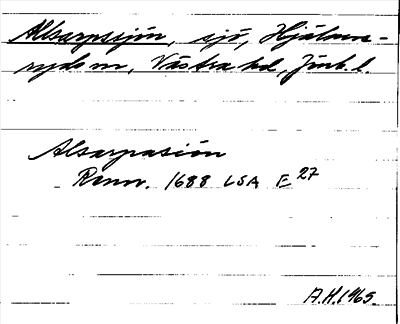 Alsarpsjön, sjö, Hjälms-
ryds sn, Västra hd, Jönk. l.
Alsarpasiön
Rann. 1688 LSA E 27
A.H. 1965.